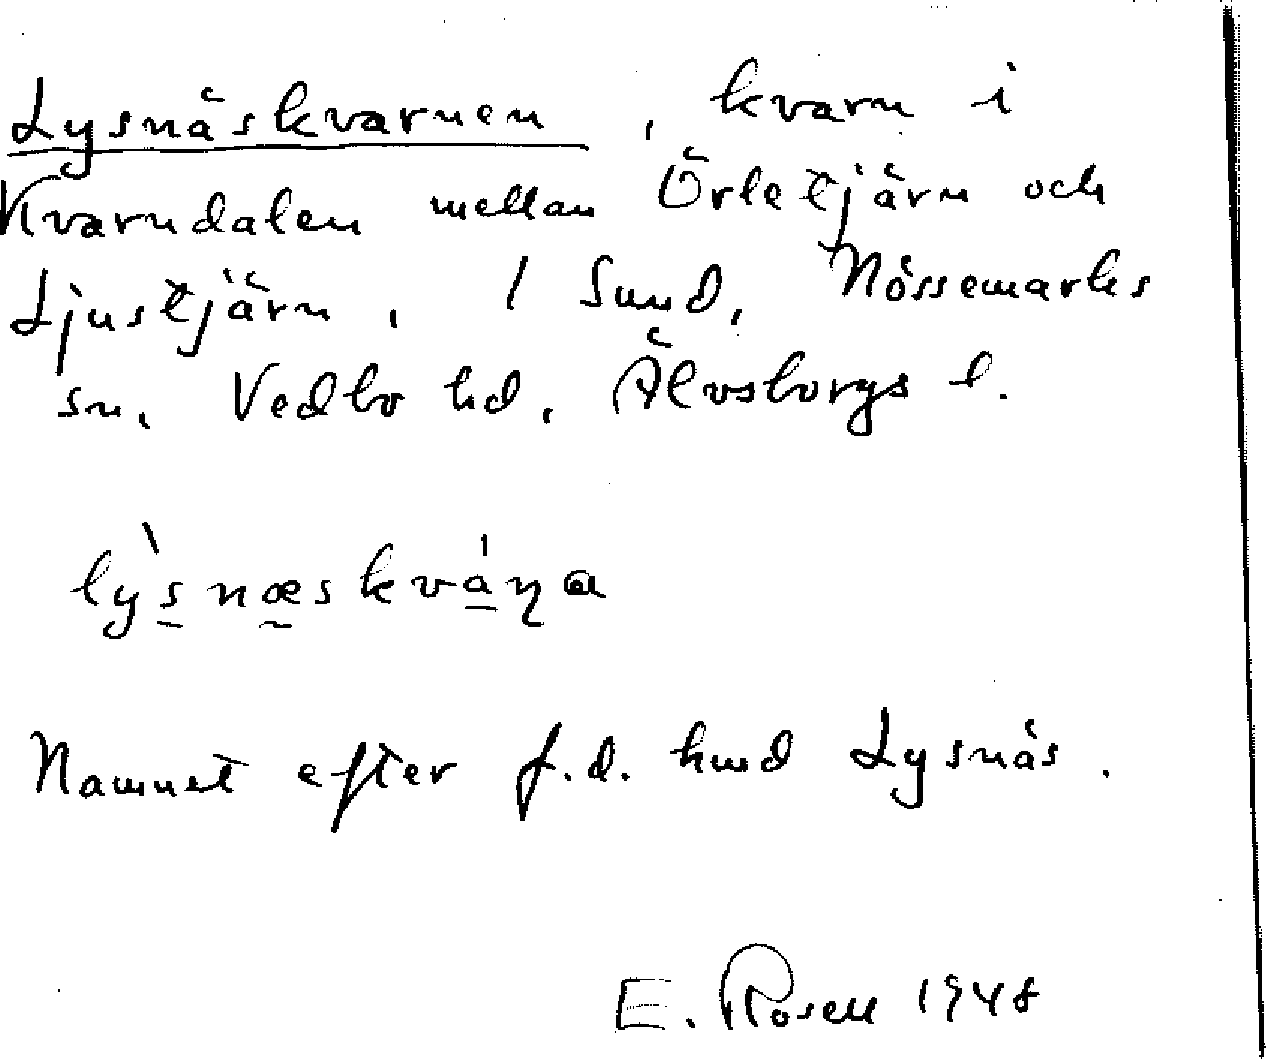 Lysnäskvarnen, kvarn i
Kvarndalen mellan Örletjärn och
Ljustjärn, / Sund, Nössemarks
sn, Vedbo hd, Älvsborgs l.
ly̖snæskvána
Namnet efter f.d. hmd Lysnäs.
E. Rosell 1948